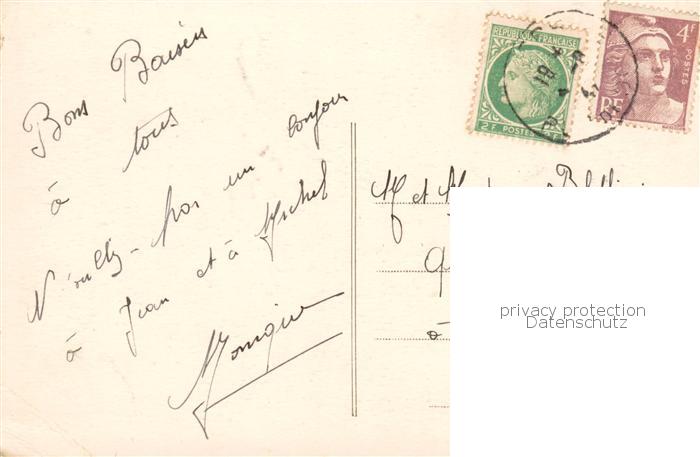 Bons Baisers
à tous
N'oubliez pas un bonjour
à Jean et à Michel
Monique
M et
à
REPUBLIQUE FRANÇAISE
2F POSTES 2F
4F
POSTES
RF
18
4
privacy protection
Datenschutz